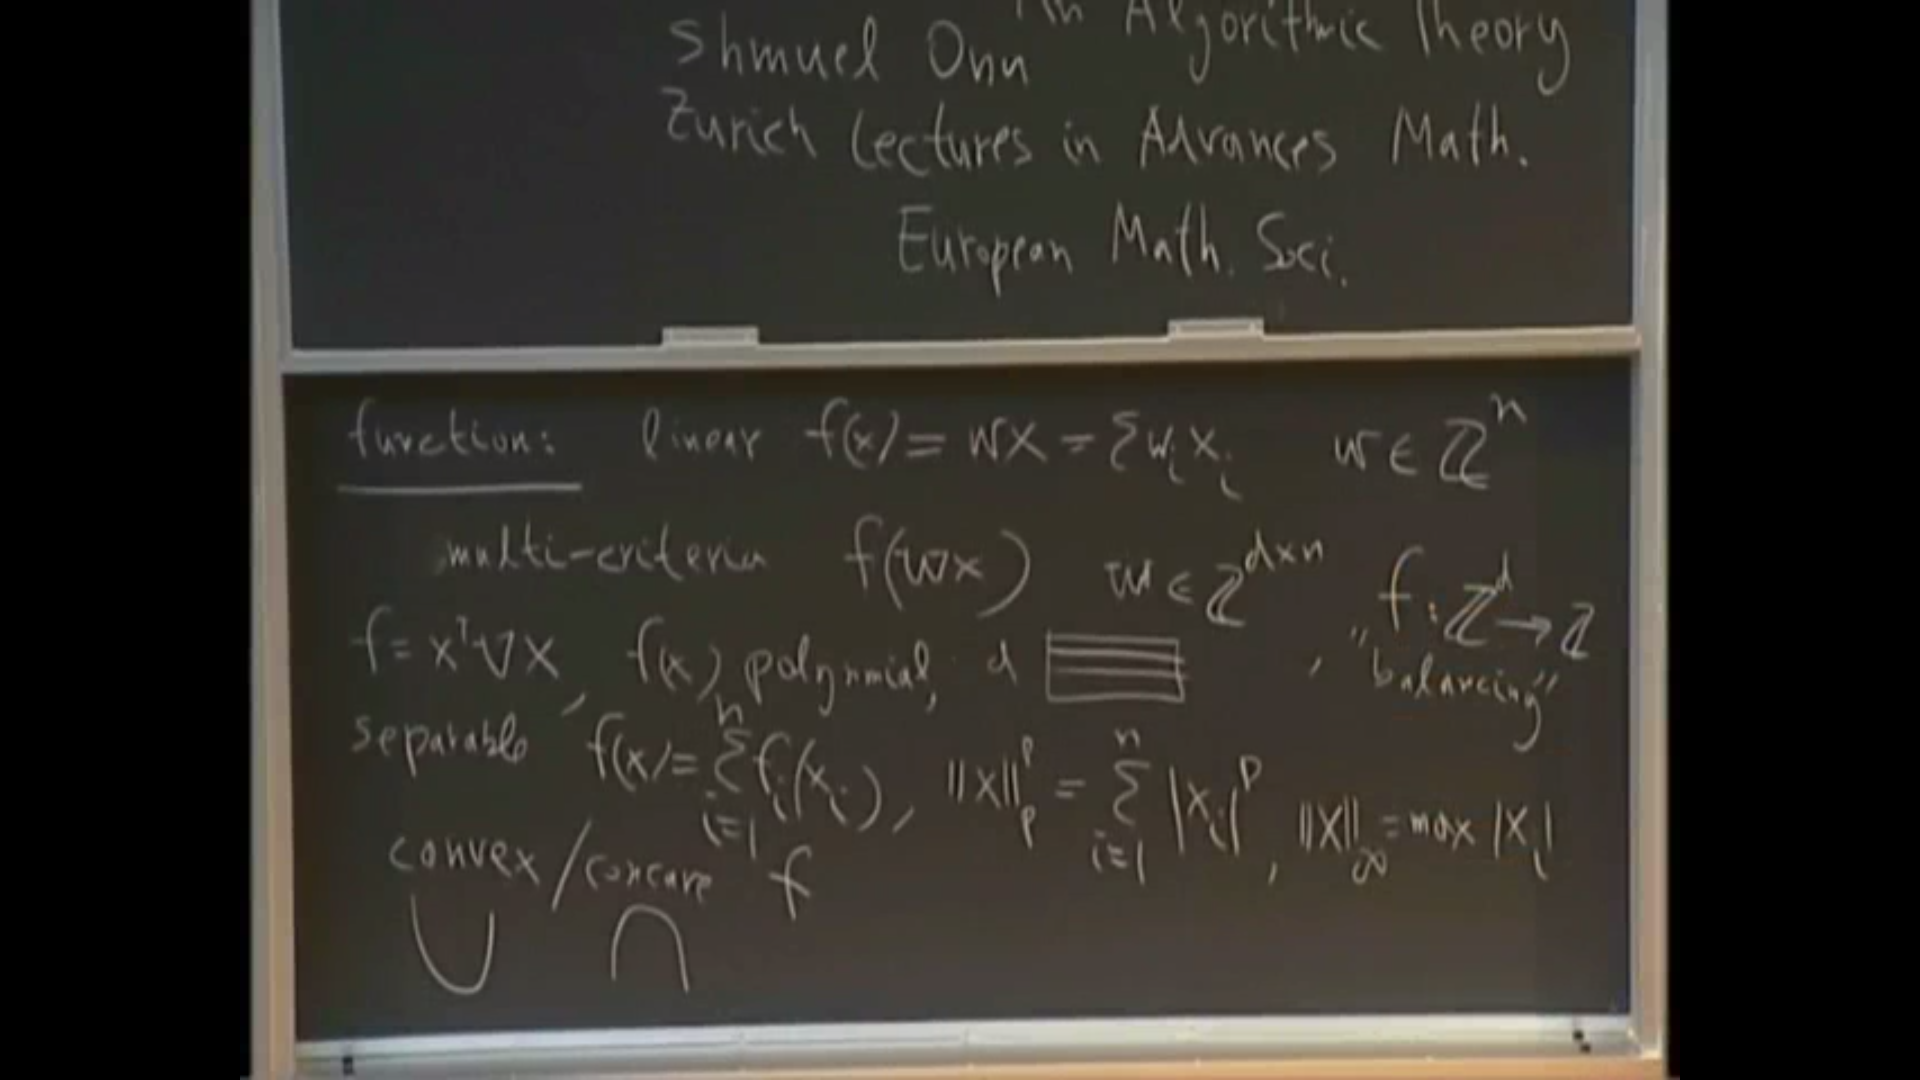 An Algorithmic Theory
Shmuel Onn
Zurich Lectures in Advances Math.
European Math. Soci.
function: linear f(x) = wx = Σ w_i x_i w ∈ ℤ^n
multi-criteria f(Wx) W ∈ ℤ^{d×n}, f: ℤ^d → ℤ
f = x^T V x, f(x) polynomial, d , "balancing"
separable f(x) = Σ_{i=1}^n f_i(x_i), ||x||_p^p = Σ_{i=1}^n |x_i|^p, ||x||_∞ = max |x_i|
convex / concave f